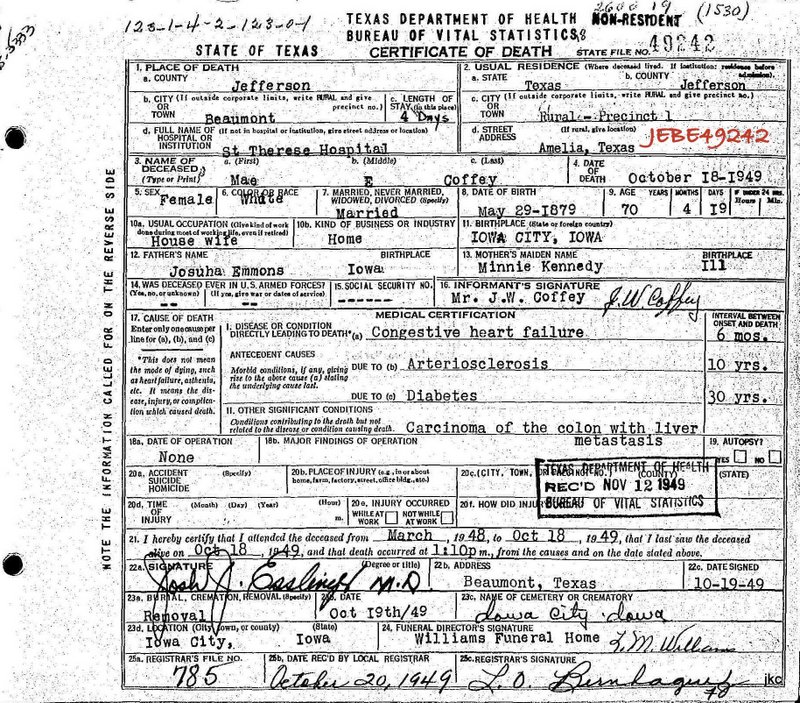 123-1-4-2-123-0-1
TEXAS DEPARTMENT OF HEALTH
NON-RESIDENT (1530)
BUREAU OF VITAL STATISTICS
STATE OF TEXAS CERTIFICATE OF DEATH STATE FILE NO. 49242
1. PLACE OF DEATH
a. COUNTY Jefferson
2. USUAL RESIDENCE (Where deceased lived. If institution: residence before admission).
a. STATE Texas b. COUNTY Jefferson
b. CITY (If outside corporate limits, write RURAL and give precinct no.) OR TOWN Beaumont
c. LENGTH OF STAY (in this place) 4 Days
c. CITY (If outside corporate limits, write RURAL and give precinct no.) OR TOWN Rural - Precinct 1
d. FULL NAME OF (If not in hospital or institution, give street address or location) HOSPITAL OR INSTITUTION St Therese Hospital
d. STREET ADDRESS (If rural, give location) Amelia, Texas
JEBE49242
3. NAME OF DECEASED (Type or Print) a. (First) Mae b. (Middle) E c. (Last) Coffey
4. DATE OF DEATH October 18-1949
5. SEX Female
6. COLOR OR RACE White
7. MARRIED, NEVER MARRIED, WIDOWED, DIVORCED (Specify) Married
8. DATE OF BIRTH May 29-1879
9. AGE YEARS 70 MONTHS 4 DAYS 19 IF UNDER 24 HRS. Hours Min.
10a. USUAL OCCUPATION (Give kind of work done during most of working life, even if retired) House wife
10b. KIND OF BUSINESS OR INDUSTRY Home
11. BIRTHPLACE (State or foreign country) IOWA CITY, IOWA
12. FATHER'S NAME Josuha Emmons BIRTHPLACE Iowa
13. MOTHER'S MAIDEN NAME Minnie Kennedy BIRTHPLACE Ill
14. WAS DECEASED EVER IN U.S. ARMED FORCES? (Yes, no, or unknown) ------ (If yes, give war or dates of service) ------
15. SOCIAL SECURITY NO. ------
16. INFORMANT'S SIGNATURE Mr. J.W. Coffey J. W Coffey
MEDICAL CERTIFICATION
INTERVAL BETWEEN ONSET AND DEATH
17. CAUSE OF DEATH
Enter only one cause per line for (a), (b), and (c)
I. DISEASE OR CONDITION DIRECTLY LEADING TO DEATH* (a) Congestive heart failure 6 mos.
*This does not mean the mode of dying, such as heart failure, asthenia, etc. It means the disease, injury, or complication which caused death.
ANTECEDENT CAUSES
Morbid conditions, if any, giving rise to the above cause (a) stating the underlying cause last.
DUE TO (b) Arteriosclerosis 10 yrs.
DUE TO (c) Diabetes 30 yrs.
II. OTHER SIGNIFICANT CONDITIONS
Conditions contributing to the death but not related to the disease or condition causing death.
Carcinoma of the colon with liver metastasis
18a. DATE OF OPERATION None
18b. MAJOR FINDINGS OF OPERATION
19. AUTOPSY? YES NO
20a. ACCIDENT SUICIDE HOMICIDE (Specify)
20b. PLACE OF INJURY (e.g., in or about home, farm, factory, street, office bldg., etc.)
20c. (CITY, TOWN, OR PRECINCT NO.) (COUNTY) (STATE)
20d. TIME OF INJURY (Month) (Day) (Year) (Hour) m.
20e. INJURY OCCURRED WHILE AT WORK NOT WHILE AT WORK
20f. HOW DID INJURY
TEXAS DEPARTMENT OF HEALTH
REC'D NOV 12 1949
BUREAU OF VITAL STATISTICS
21. I hereby certify that I attended the deceased from March, 1948, to Oct 18, 1949, that I last saw the deceased
alive on Oct 18, 1949, and that death occurred at 1:10p m., from the causes and on the date stated above.
22a. SIGNATURE (Degree or title) M.D.
22b. ADDRESS Beaumont, Texas
22c. DATE SIGNED 10-19-49
23a. BURIAL, CREMATION, REMOVAL (Specify) Removal
23b. DATE Oct 19th/49
23c. NAME OF CEMETERY OR CREMATORY Iowa City Iowa
23d. LOCATION (City, town, or county) (State) Iowa City, Iowa
24. FUNERAL DIRECTOR'S SIGNATURE Williams Funeral Home
25a. REGISTRAR'S FILE NO. 785
25b. DATE REC'D BY LOCAL REGISTRAR October 20, 1949
25c. REGISTRAR'S SIGNATURE
jkc
NOTE THE INFORMATION CALLED FOR ON THE REVERSE SIDE